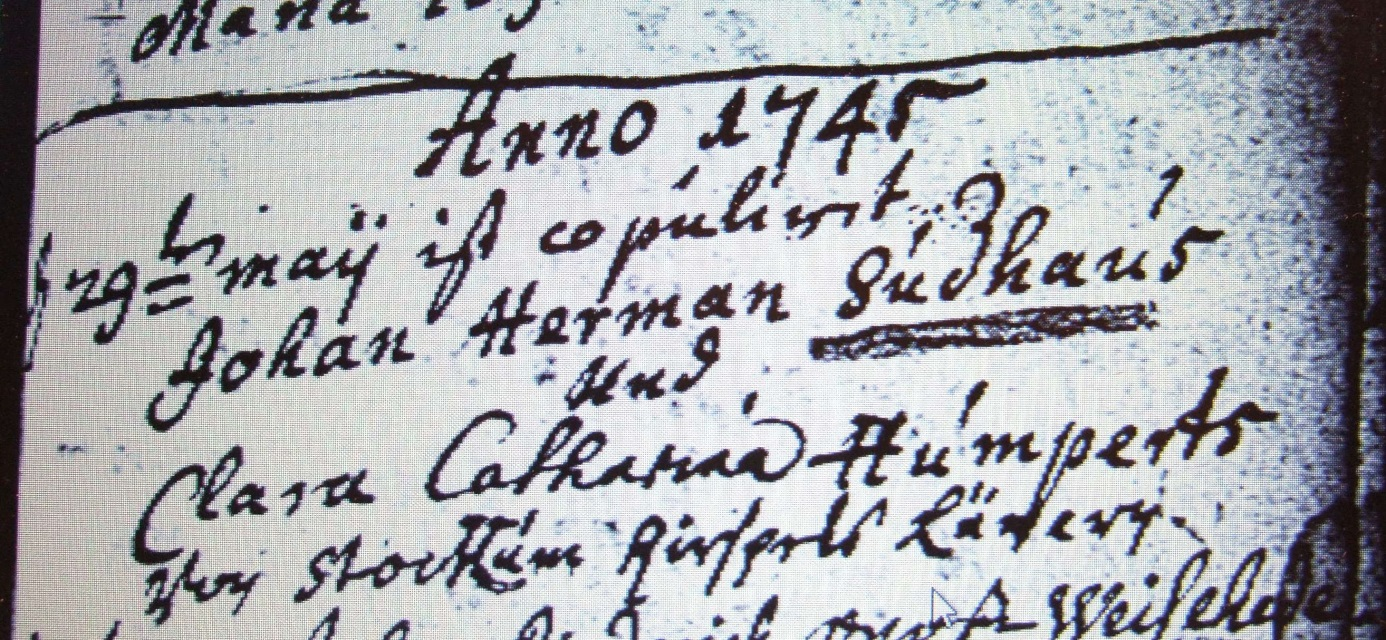 Maria
Anno 1745
29ten maij ist copulirt
Johan Herman Südhaus
Und
Clara Catharina Humperts
Von Stockum Kirspels
Weische